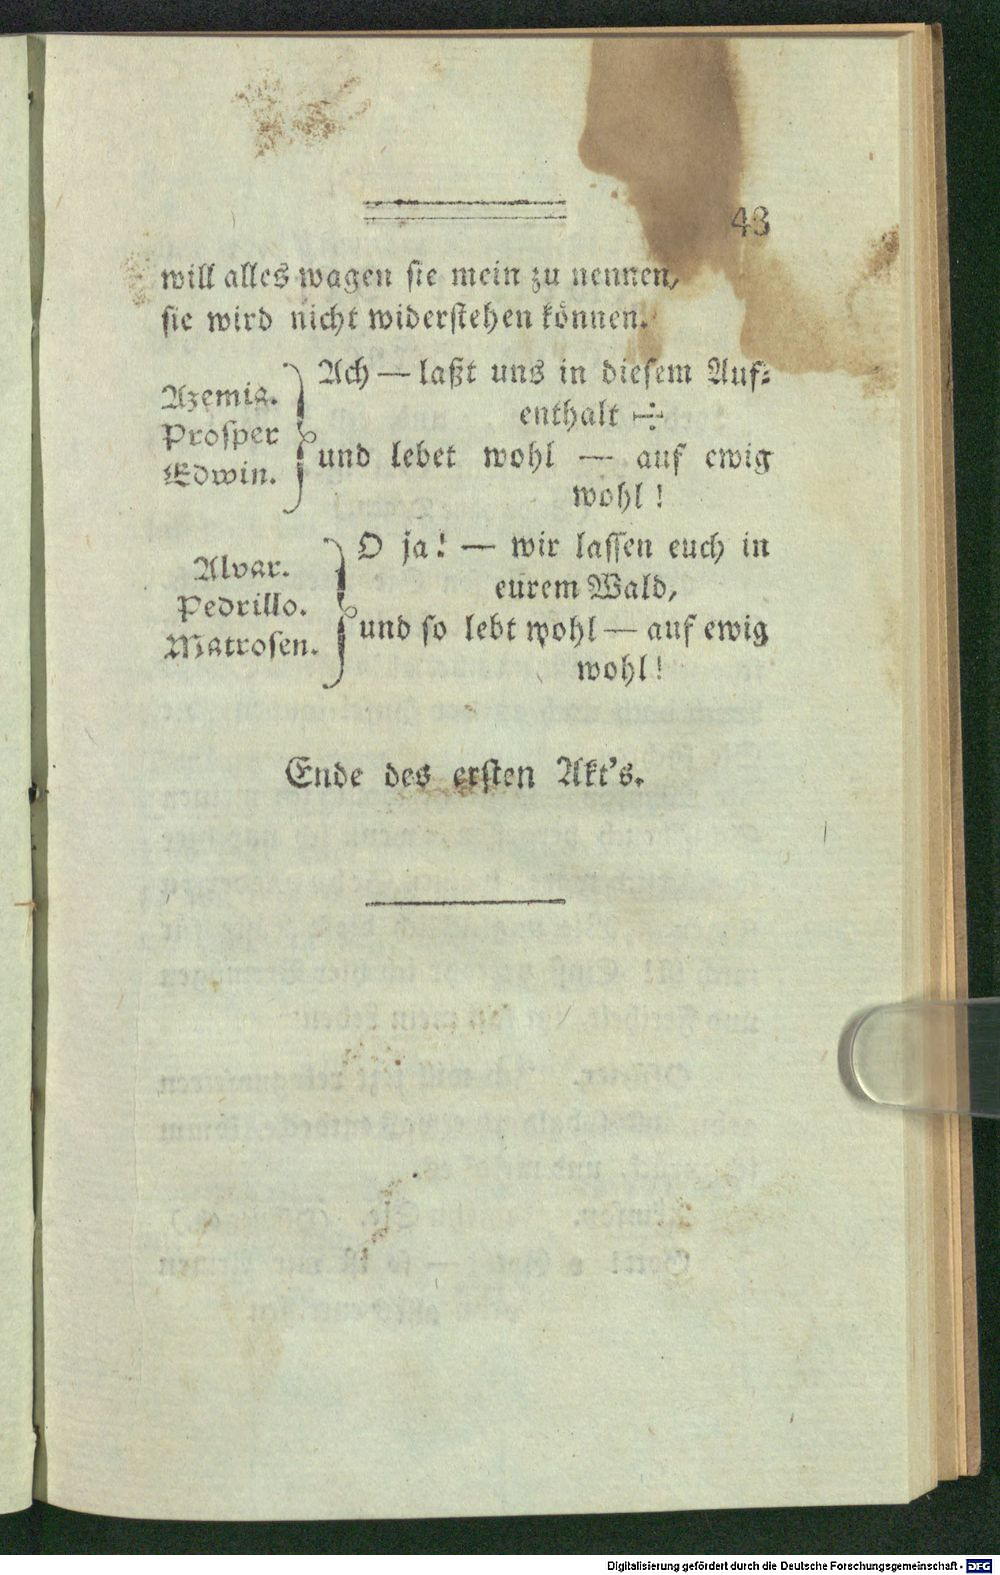 43
will alles wagen sie mein zu nennen,
sie wird nicht widerstehen können.
Azemia.
Prosper
Edwin.
Ach — laßt uns in diesem Auf-
enthalt ÷
und lebet wohl — auf ewig
wohl!
Alvar.
Pedrillo.
Matrosen.
O ja! — wir lassen euch in
eurem Wald,
und so lebt wohl — auf ewig
wohl!
Ende des ersten Akt's.
Digitalisierung gefördert durch die Deutsche Forschungsgemeinschaft - DFG